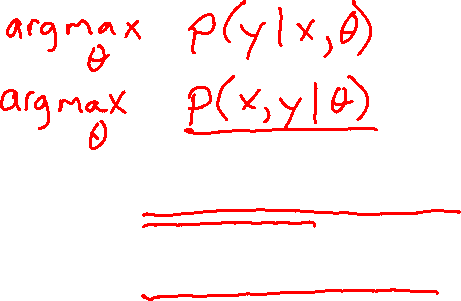 argmax θ p(y|x,θ)
argmax θ p(x,y|θ)